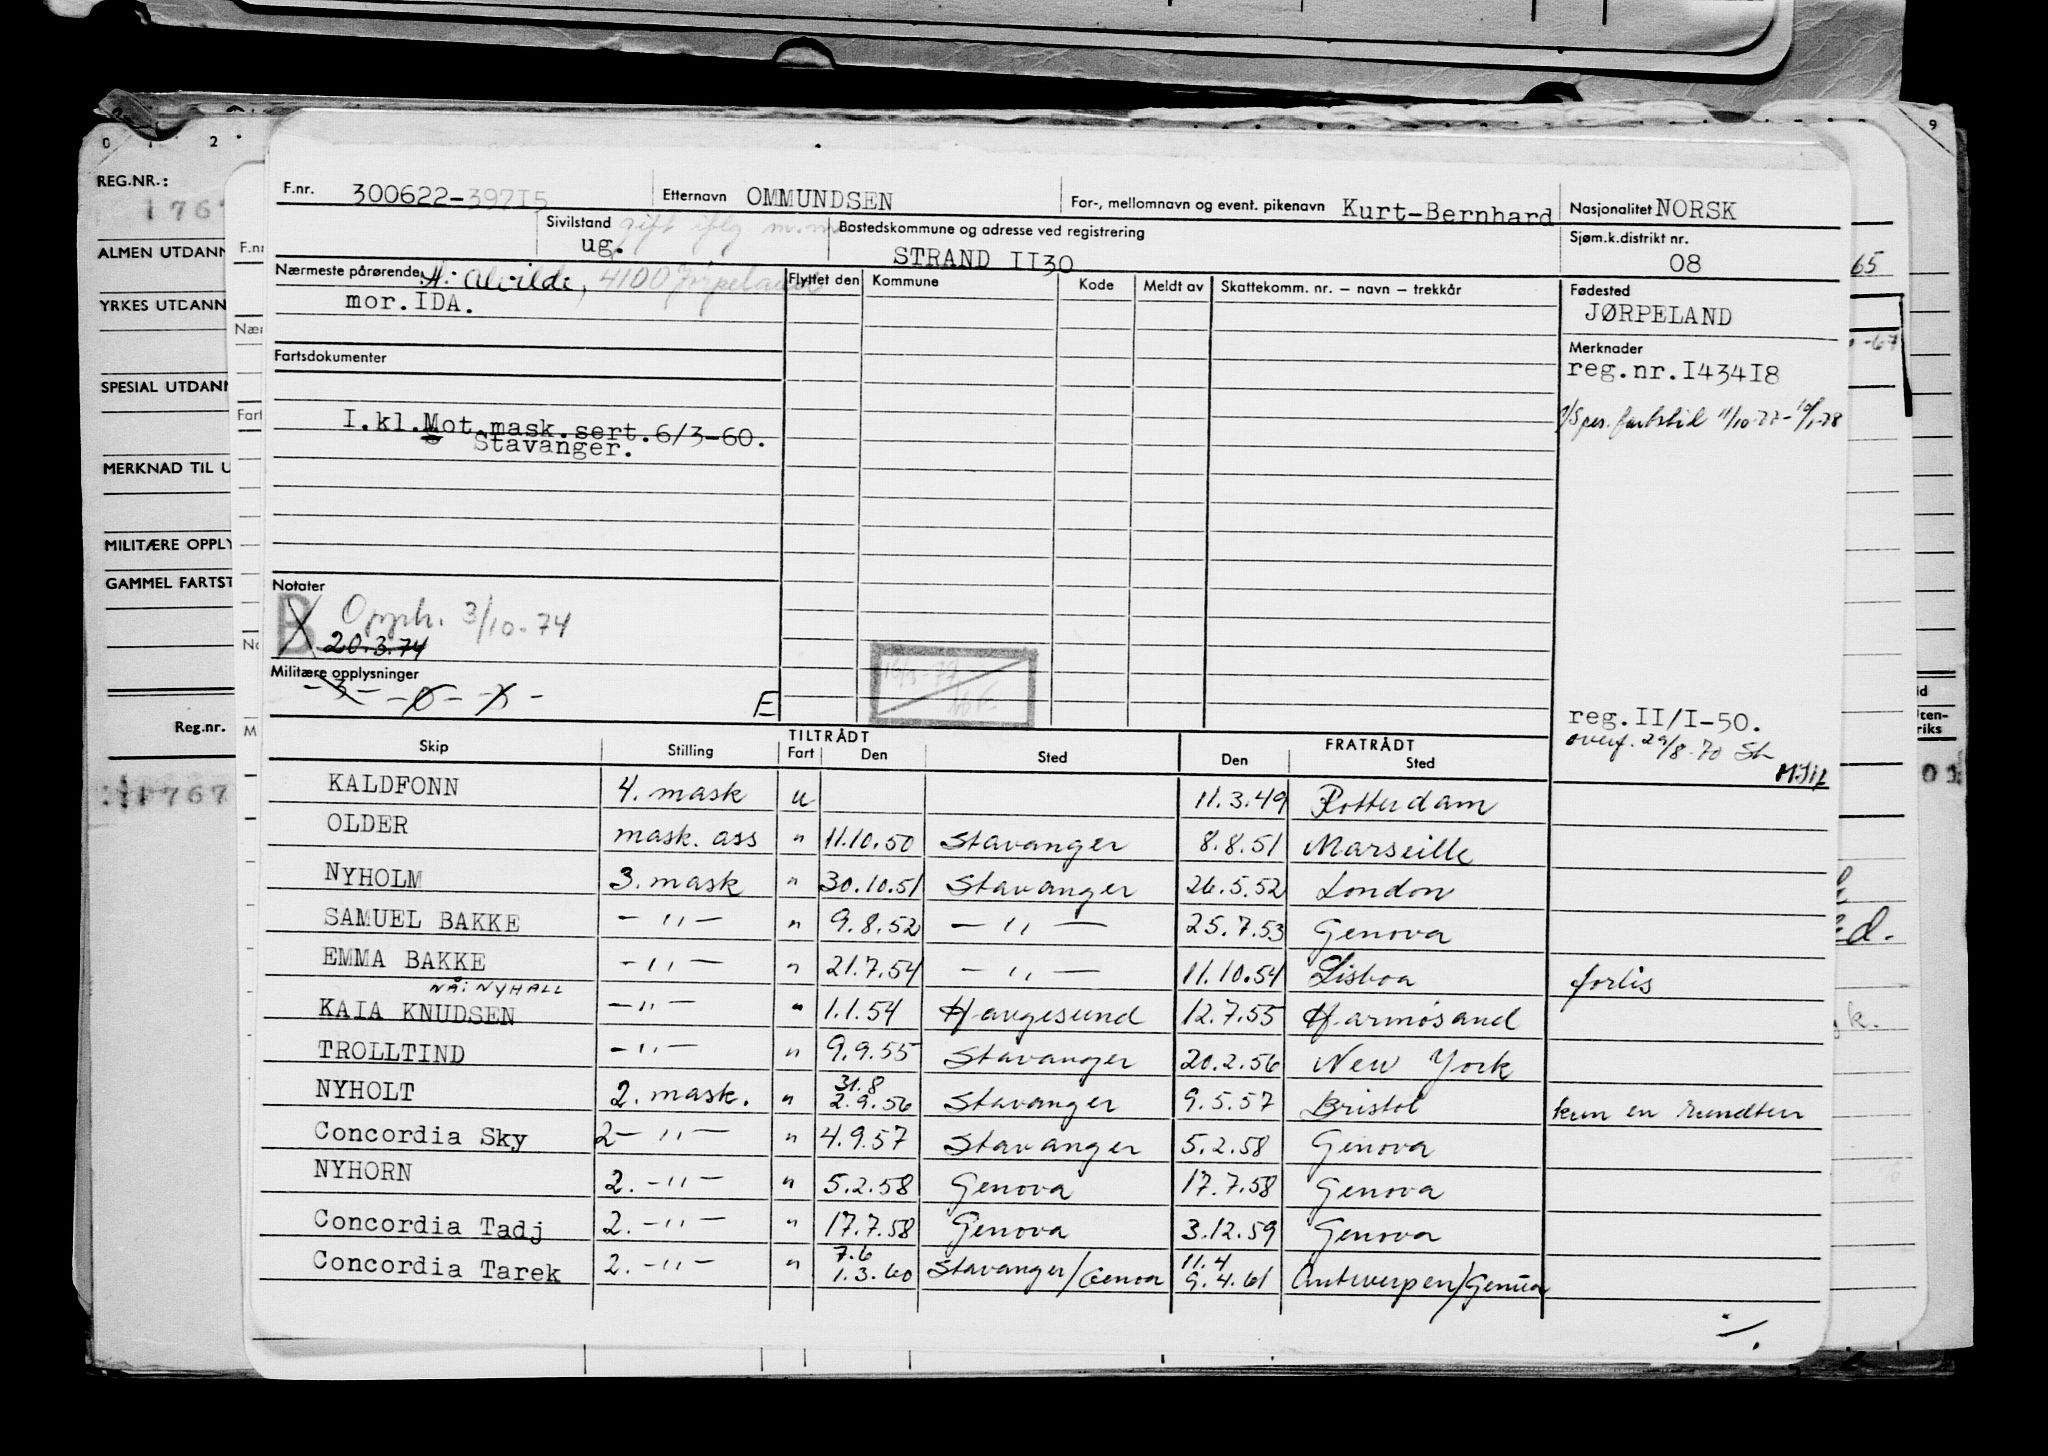 0 1 2
9
REG.NR.:
1767
ALMEN UTDANN
YRKES UTDANN
SPESIAL UTDANN
MERKNAD TIL U
MILITÆRE OPPLY
GAMMEL FARTST
Reg.nr.
1767
F.nr
Nær
Fart
No
M
F.nr. 300622-397I5 Etternavn OMMUNDSEN For-, mellomnavn og event. pikenavn Kurt-Bernhard Nasjonalitet NORSK
Sivilstand gift iflg m.m Bostedskommune og adresse ved registrering Sjøm.k.distrikt nr.
ug. STRAND II30 08 65
Nærmeste pårørende H: Alvilde, 4100 Jørpeland Flyttet den Kommune Kode Meldt av Skattekomm. nr. – navn – trekkår Fødested
mor.IDA. JØRPELAND
Fartsdokumenter Merknader -67
reg.nr.I434I8
I.kl.Mot.mask.sert.6/3-60. fartstid 11/10-77-10/1-78
Stavanger.
Notater
B Opph. 3/10-74
20.3.74
Militære opplysninger
E
reg.II/I-50.
overf. 29/8-70 Sh
Skip Stilling TILTRÅDT Fart Den Sted FRATRÅDT Den Sted
KALDFONN 4. mask u 11.3.49 Rotterdam
OLDER mask. ass " 11.10.50 Stavanger 8.8.51 Marseille
NYHOLM 3. mask " 30.10.51 Stavanger 26.5.52 London
SAMUEL BAKKE – " – " 9.8.52 – " – 25.7.53 Genova
EMMA BAKKE – " – " 21.7.54 – " – 11.10.54 Lisboa forlis
NÅ: NYHALL
KAIA KNUDSEN – " – " 1.1.54 Haugesund 12.7.55 Harnösand
TROLLTIND – " – " 9.9.55 Stavanger 20.2.56 New York
31.8
NYHOLT 2. mask. " 2.9.56 Stavanger 9.5.57 Bristol kun en rundtur
Concordia Sky 2 – " – " 4.9.57 Stavanger 5.2.58 Genova
NYHORN 2. – " – " 5.2.58 Genova 17.7.58 Genova
Concordia Tadj 2. – " – " 17.7.58 Genova 3.12.59 Genova
7.6 11.4
Concordia Tarek 2. – " – " 1.3.60 Stavanger/Genoa 9.4.61 Antwerpen/Genua